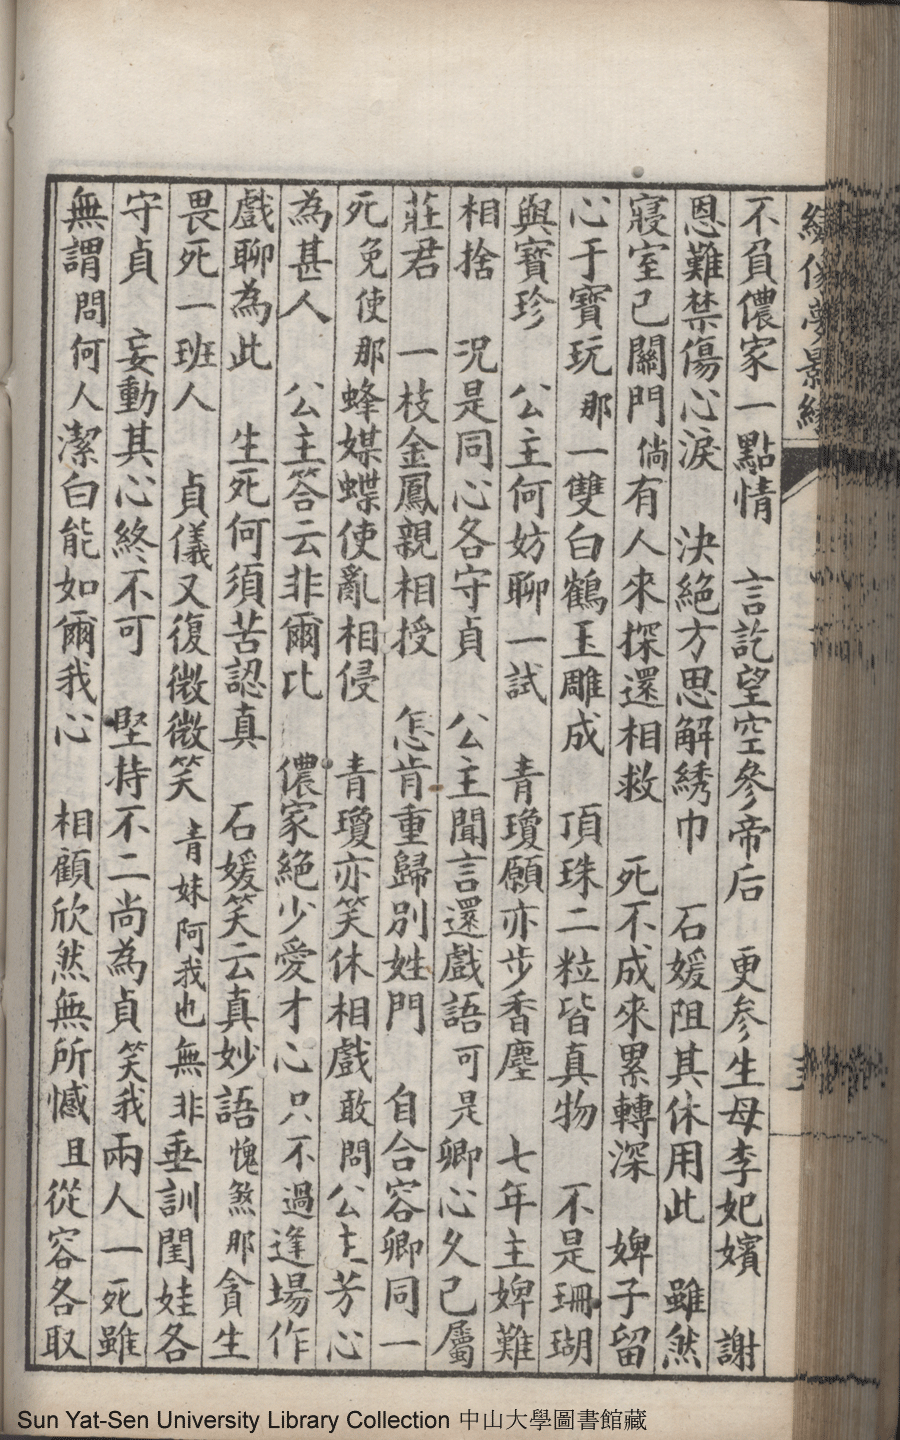 繡像夢影緣
不負儂家一點情　言訖望空參帝后　更参生母李妃嬪　謝
恩難禁傷心淚　決絕方思解綉巾　石媛阻其休用此　雖然
寢室已關門　倘有人來探還相救　死不成來累轉深　婢子留
心于寶玩　那一雙白鶴玉雕成　頂珠二粒皆真物　不是珊瑚
與寶珍　公主何妨聊一試　青瓊願亦步香塵　七年主婢難
相捨　況是同心各守貞　公主聞言還戲語　可是卿心久已屬
莊君　一枝金鳳親相授　怎肯重歸別姓門　自合容卿同一
死　免使那蜂媒蝶使亂相侵　青瓊亦笑休相戲　敢問公主芳心
為甚人　公主答云非爾比　儂家絕少愛才心　只不過逢場作
戲聊為此　生死何須苦認真　石媛笑云真妙語　愧煞那貪生
畏死一班人　貞儀又復微微笑　青妹阿我也無非垂訓閨娃各
守貞　妄動其心終不可　堅持不二尚為貞　笑我兩人一死雖
無謂　問何人潔白能如爾我心　相顧欣然無所憾　且從容各取
Sun Yat-Sen University Library Collection 中山大學圖書館藏